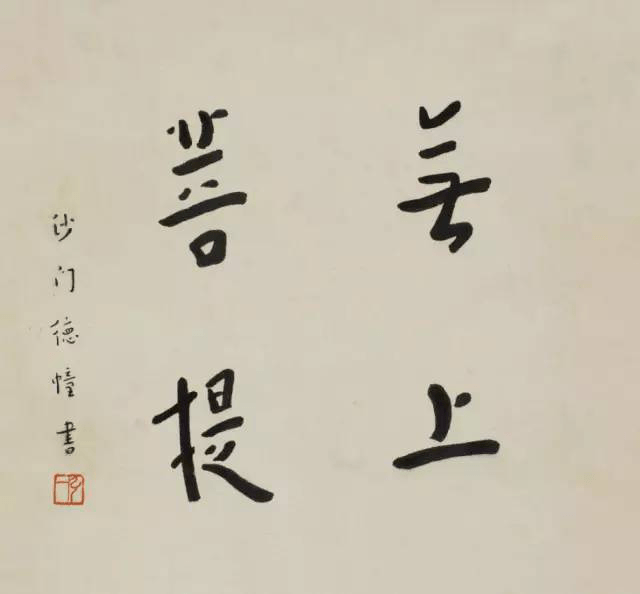 無上
菩提
沙门德幢書